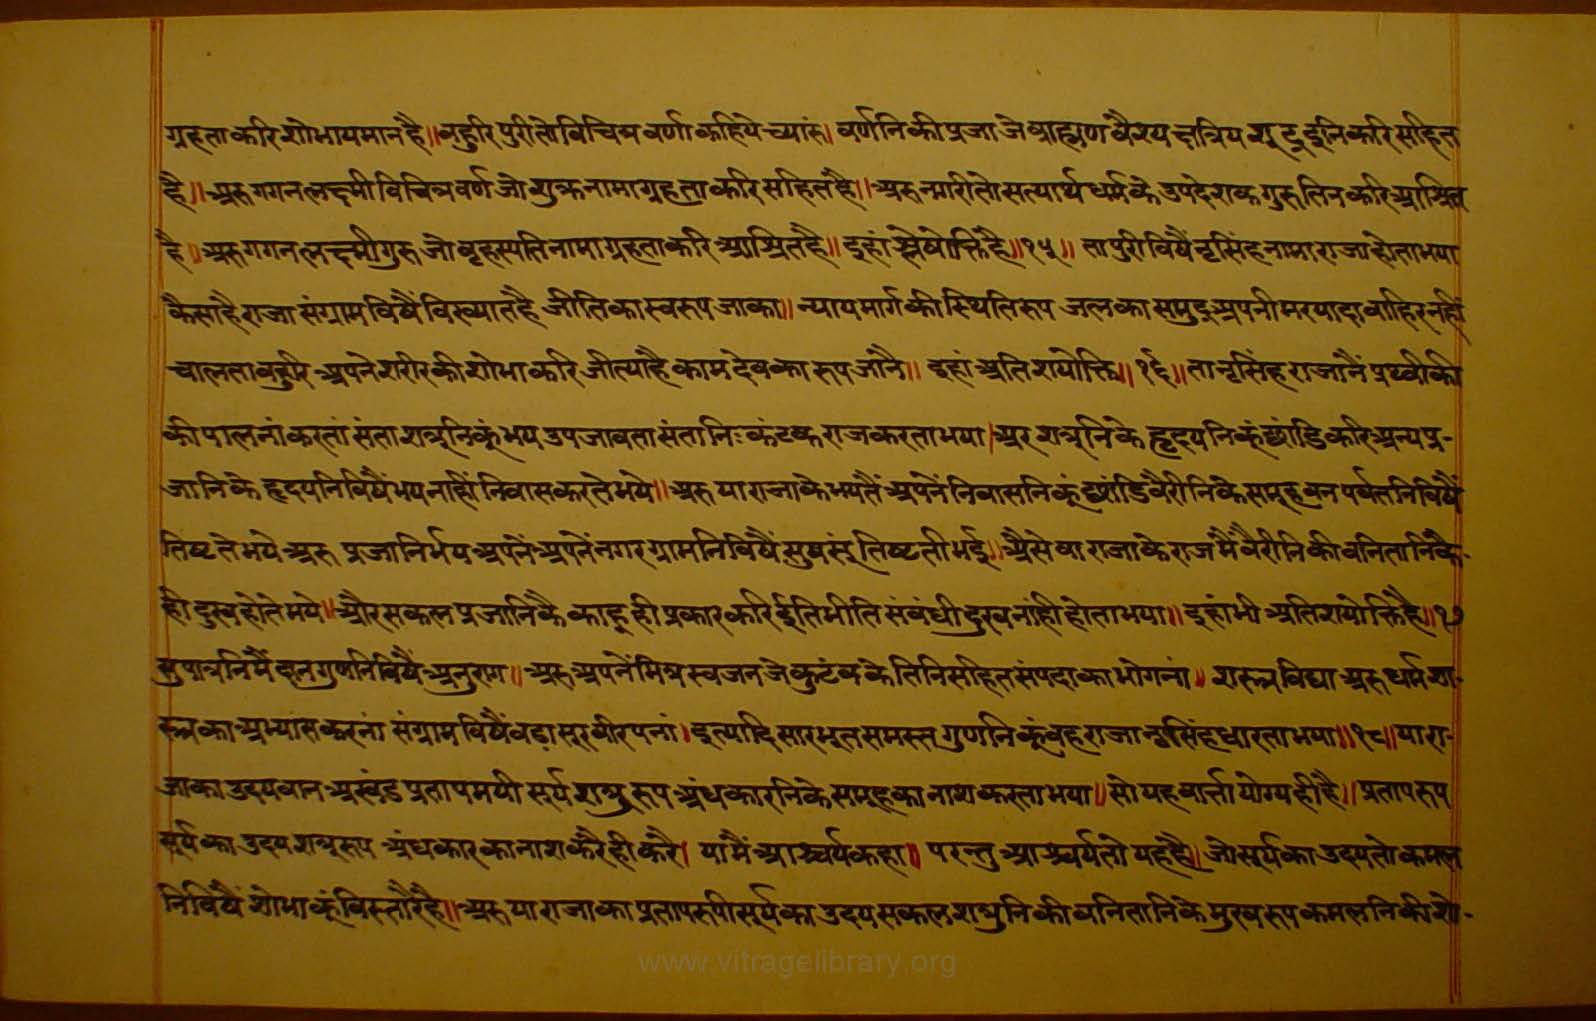 ग्रहता करि शोभायमान है॥ बहुरि पुरी तो विचित्र वर्ण कहिये च्यारुं। वर्णनि की प्रजा जे ब्राह्मण वैश्य क्षत्रिय शूद्र इनि करि सहित
है॥ अरु गगन लक्ष्मी विचित्र वर्ण जो शुक्र नामा ग्रहता करि सहित है॥ अरु नगरी तो सत्यार्थ धर्म के उपदेशक गुरु तिन करि आश्रित
है॥ अरु गगन लक्ष्मी गुरु जो वृहस्पति नामा ग्रहता करि आश्रित है॥ इहां श्लेषोक्ति है॥१५॥ ता पुरी विषैं नृसिंह नामा राजा होता भया
कैसा है राजा संग्राम विषैं विख्यात है जीति का स्वरूप जाका॥ न्याय मार्ग की स्थिति रूप जल का समुद्र अपनी मरयादा वाहिर नहीं
चालता बहुरि अपने शरीर की शोभा करि जीत्या है काम देव का रूप जानै॥ इहां अतिशयोक्ति॥१६॥ ता नृसिंह राजा नैं पृथ्वी की
की पालनां करतां संता शत्रूनि कूं भय उपजावता संता निःकंटक राज करता भया। अर शत्रूनि के हृदयनि कूं छांडि करि अन्य प्र-
जानि के हृदयनि विषैं भय नाहिं निवास करते भये॥ अरु या राजा के भय तैं अपनें निवासनि कूं छांडि वैरीनि के समूह वन पर्वतनि विषैं
तिष्टते भये अरु प्रजा निर्भय अपनें अपनें नगर ग्रामनि विषैं सुष सूं तिष्टती भई॥ अैसे वा राजा के राज मैं वैरीनि की वनितानि कै-
ही दुख होते भये॥ और सकल प्रजानि कै काहू ही प्रकार करि ईति भीति संबंधी दुख नांही होता भया॥ इहां भी अतिशयोक्ति है॥१७
सुपात्रनि मैं दान गुणनि विषैं अनुराग॥ अरु अपनें मित्र स्वजन जे कुटंब के तिनि सहित संपदा का भोगनां॥ शस्त्र विद्या अरु धर्म शा-
स्त्र का अभ्यास करनां संग्राम विषैं वडा सूर वीर पनां। इत्यादि सारभूत समस्त गुणनि कूं वह राजा नृसिंह धारता भया॥१८॥ या रा-
जा का उदयवान अखंड प्रतापमयी सूर्य शत्रु रूप अंधकारनि के समूह का नाश करता भया॥ सो यह वार्त्ता योग्य ही है॥ प्रताप रूप
सूर्य का उदय शत्रू रूप अंधकार का नाश करै ही करै। या मैं आश्चर्य कहा॥ परन्तु आश्चर्य तो यह है॥ जो सूर्य का उदय तो कमल
नि विषैं शोभा कूं विस्तारै है॥ अरु या राजा का प्रताप रूपी सूर्य का उदय सकल शत्रुनि की वनितानि के मुख रूप कमलनि की शो-
www.vitragelibrary.org